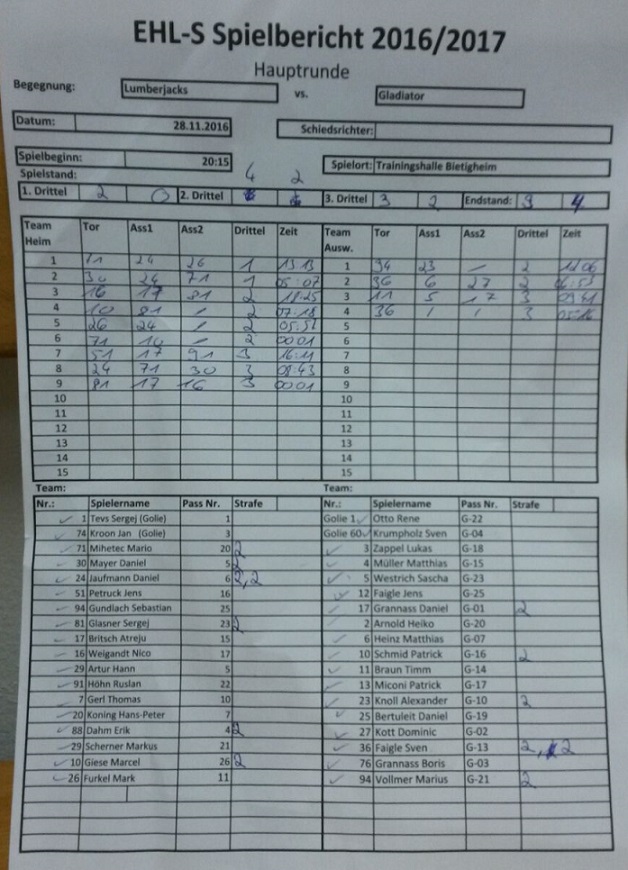 EHL-S Spielbericht 2016/2017
Hauptrunde
Begegnung: Lumberjacks vs. Gladiator
Datum: 28.11.2016 Schiedsrichter:
Spielbeginn: 20:15 Spielort: Trainingshalle Bietigheim
Spielstand: 4 2
1. Drittel 2 0 2. Drittel 3. Drittel 3 2 Endstand: 9 4
Team Heim Tor Ass1 Ass2 Drittel Zeit Team Ausw. Tor Ass1 Ass2 Drittel Zeit
1 24 26 1 13:13 1 94 23 / 2
2 30 24 71 1 05:07 2 36 6 27 2
3 16 17 81 2 18:25 3 11 5 17 3
4 10 81 / 2 07:18 4 36 / / 3
5 26 24 / 2 05:51 5
6 71 10 / 2 00:01 6
7 51 17 91 3 16:11 7
8 24 71 30 3 08:43 8
9 81 17 16 3 00:01 9
10 10
11 11
12 12
13 13
14 14
15 15
Team: Team:
Nr.: Spielername Pass Nr. Strafe Nr.: Spielername Pass Nr. Strafe
1 Tevs Sergej (Golie) 1 Golie 1 Otto Rene G-22
74 Kroon Jan (Golie) 3 Golie 60 Krumpholz Sven G-04
71 Mihetec Mario 20 2 3 Zappel Lukas G-18
30 Mayer Daniel 5 2 4 Müller Matthias G-15
24 Jaufmann Daniel 6 2,2 5 Westrich Sascha G-23
51 Petruck Jens 16 12 Faigle Jens G-25
94 Gundlach Sebastian 25 17 Grannass Daniel G-01 2
81 Glasner Sergej 23 2 2 Arnold Heiko G-20
17 Britsch Atreju 15 6 Heinz Matthias G-07
16 Weigandt Nico 17 10 Schmid Patrick G-16 2
29 Artur Hann 5 11 Braun Timm G-14
91 Höhn Ruslan 22 13 Miconi Patrick G-17
7 Gerl Thomas 10 23 Knoll Alexander G-10 2
20 Koning Hans-Peter 7 25 Bertuleit Daniel G-19
88 Dahm Erik 4 2 27 Kott Dominic G-02
29 Scherner Markus 21 36 Faigle Sven G-13 2, 2
10 Giese Marcel 26 2 76 Grannass Boris G-03
26 Furkel Mark 11 94 Vollmer Marius G-21 2